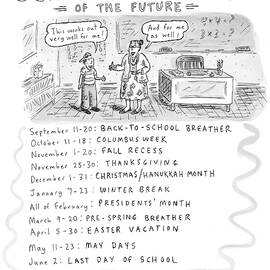 OF THE FUTURE
This works out
very well for me!
And for me
as well!
September 11-20: BACK-TO-SCHOOL BREATHER
October 11-18: COLUMBUS WEEK
November 1-20: FALL RECESS
November 25-30: THANKSGIVING
December 1-31: CHRISTMAS/HANUKKAH MONTH
January 7-23: WINTER BREAK
All of February: PRESIDENTS' MONTH
March 9-20: PRE-SPRING BREATHER
April 5-30: EASTER VACATION
May 11-23: MAY DAYS
June 2: LAST DAY OF SCHOOL